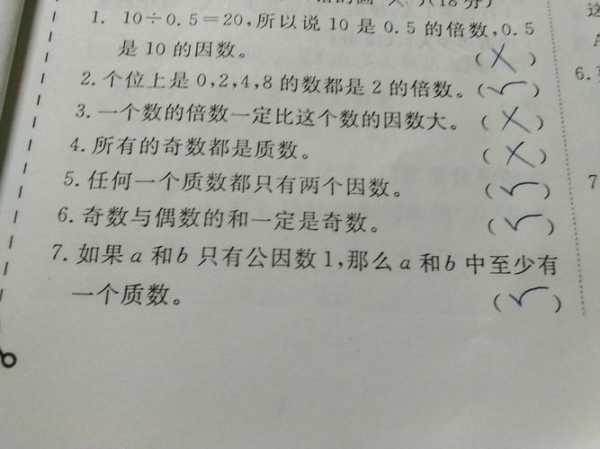 (18分)
1. 10÷0.5=20,所以说10是0.5的倍数,0.5
是10的因数。 (×)
2.个位上是0,2,4,8的数都是2的倍数。(✓)
3.一个数的倍数一定比这个数的因数大。(×)
4.所有的奇数都是质数。 (×)
5.任何一个质数都只有两个因数。 (✓)
6.奇数与偶数的和一定是奇数。 (✓)
7.如果a和b只有公因数1,那么a和b中至少有
一个质数。 (✓)
这
6.
7